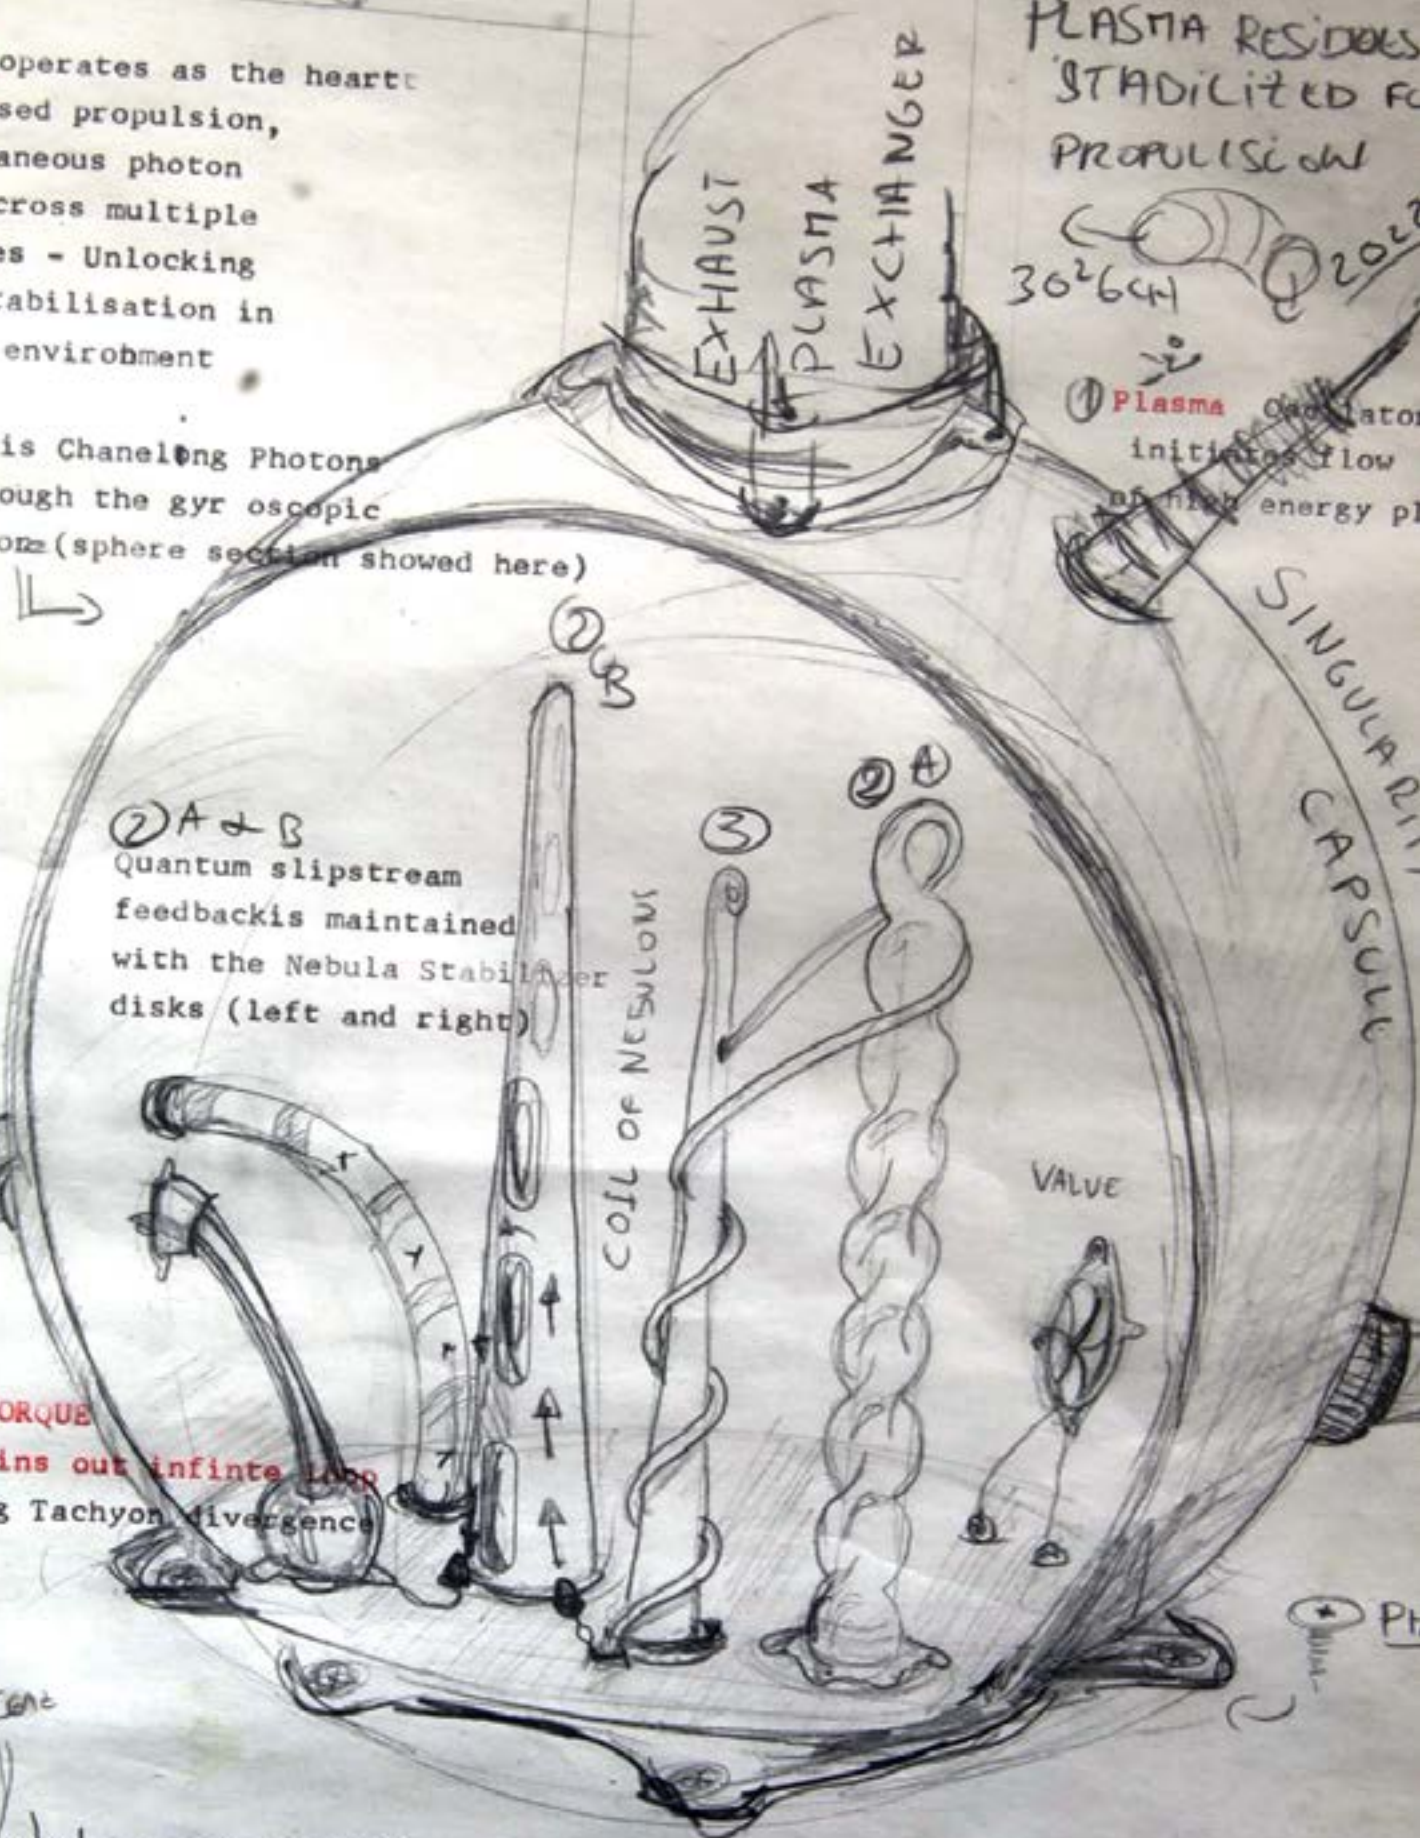 operates as the heart
sed propulsion,
aneous photon
cross multiple
es - Unlocking
tabilisation in
envirobment
is Chanelong Photons
ough the gyr oscopic
on=(sphere section showed here)
EXHAUST
PLASMA
EXCHANGER
PLASMA RESIDUES
STADILITED FO
PROPULISION
30²6CH
202
① Plasma
initiates flow
of high energy pl
SINGULARITY
CAPSULE
② B
② A
③
② A & B
Quantum slipstream
feedbackis maintained
with the Nebula Stabilizer
disks (left and right)
COIL OF NEBULONS
VALUE
ORQUE
ins out infinte loop
g Tachyon divergence
PH